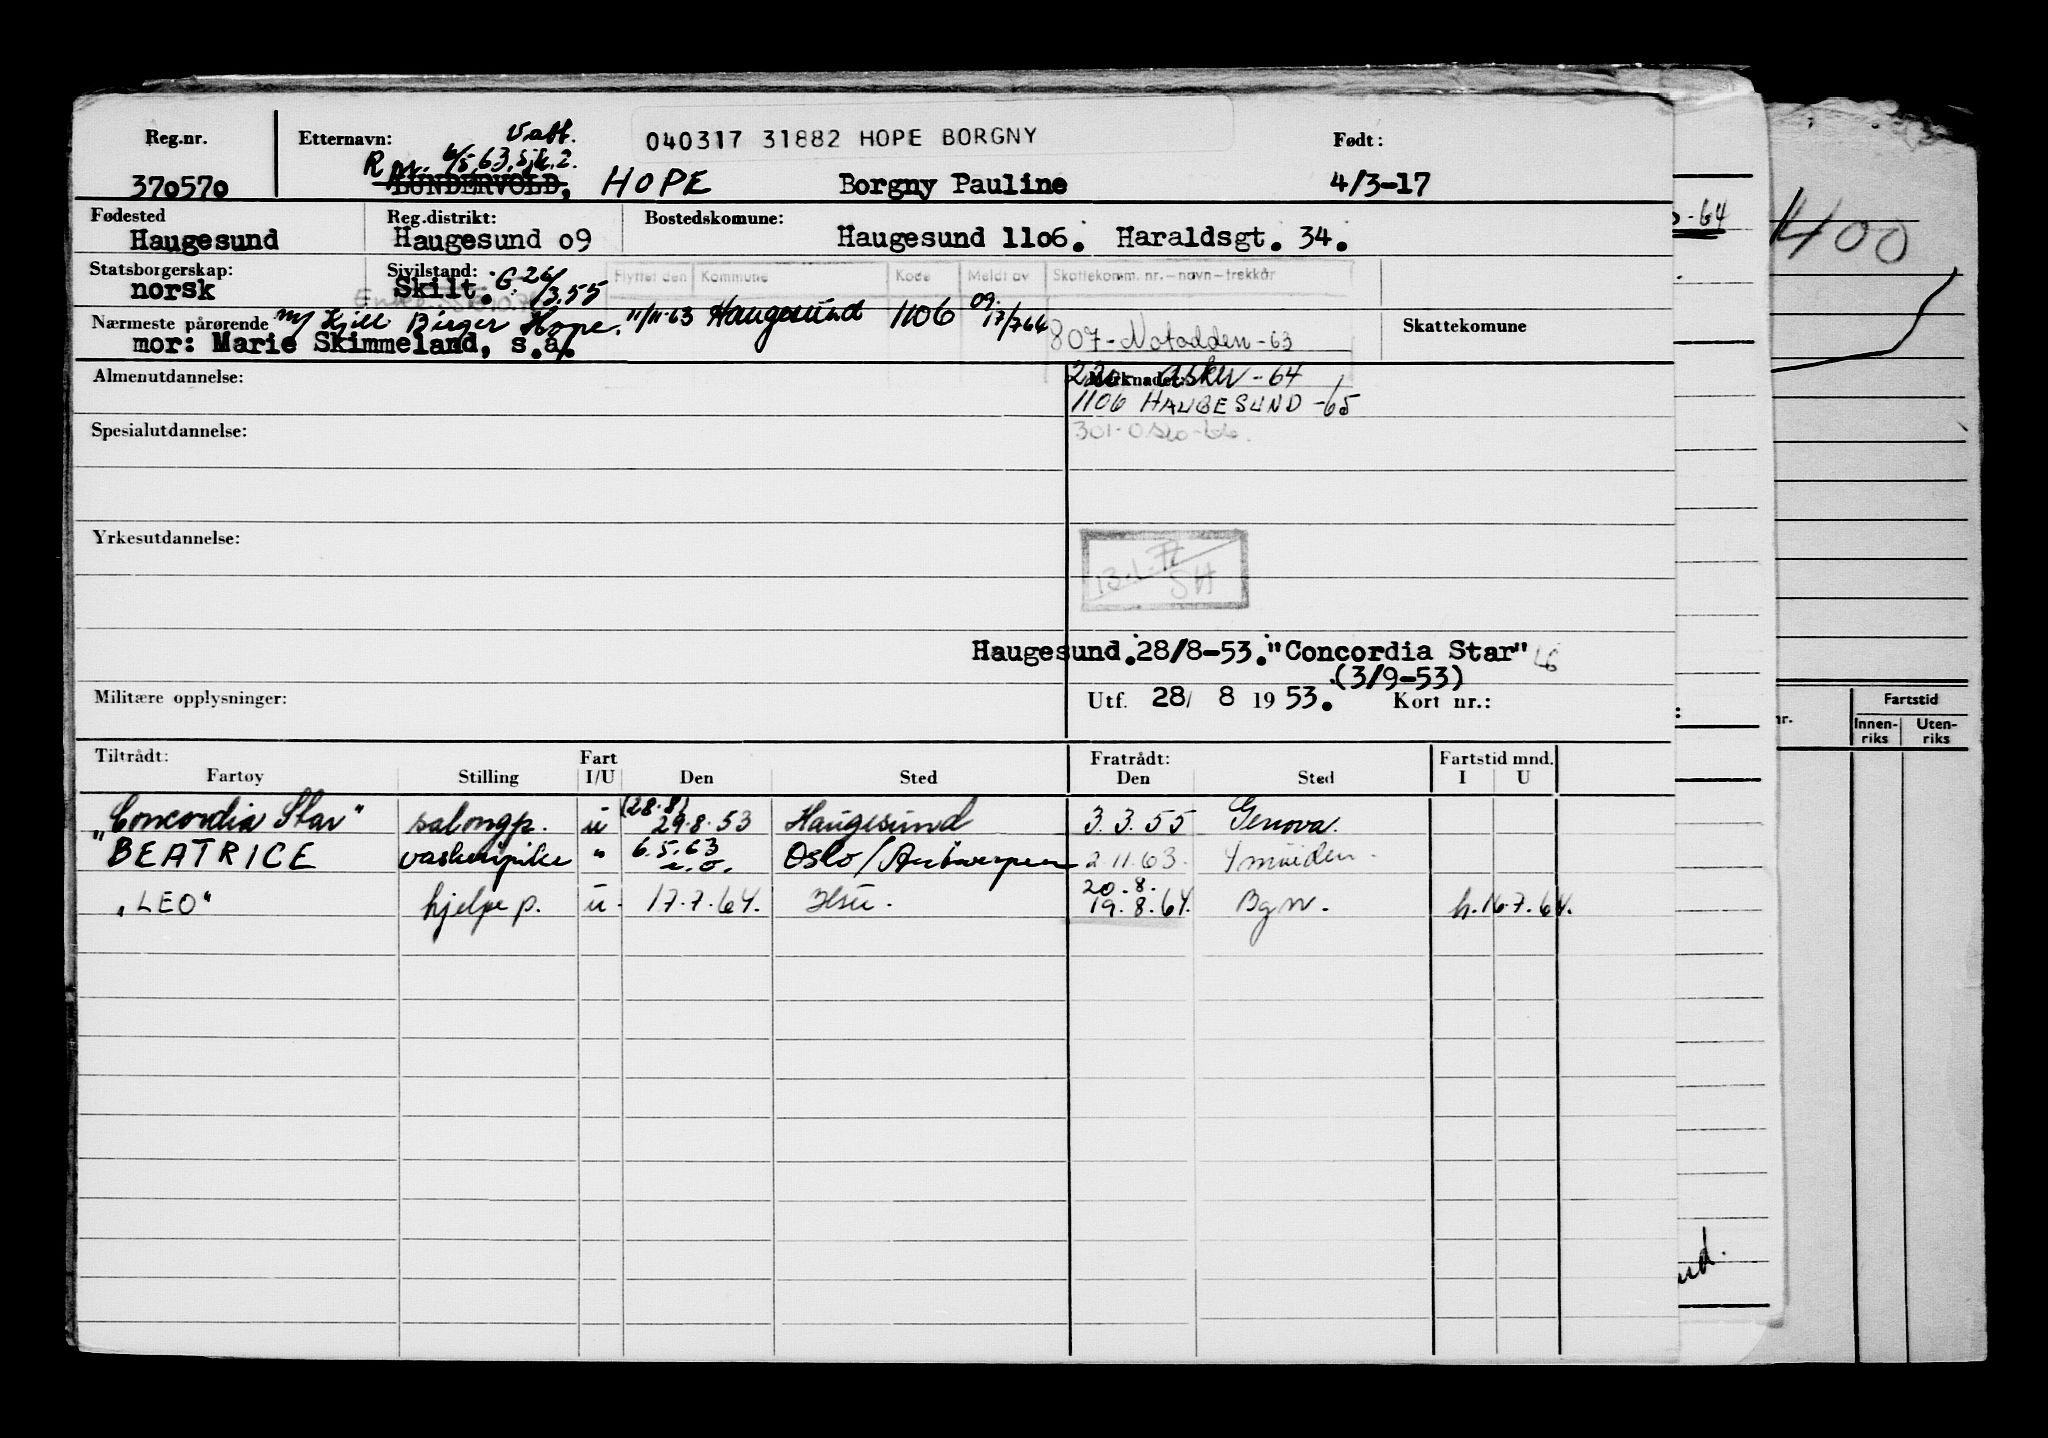 Reg.nr. Etternavn: Vatt. 040317 31882 HOPE BORGNY Født:
6/5 63. Sjk. 2.
370570 LUNDERVOLD, HOPE Borgny Pauline 4/3-17
Fødested Reg.distrikt: Bostedskomune:
Haugesund Haugesund 09 Haugesund 1106. Haraldsgt. 34.
Statsborgerskap: Sivilstand: Flyttet den Kommune Kode Meldt av Skattekomm. nr.-navn-trekkår
norsk Skilt. G. 26/3.55
Nærmeste pårørende m/ Kjell Birger Hope. 11/11-63 Haugesund 1106 09. 17/7 64 Skattekomune
mor: Marie Skimmeland, s.a. 807-Notodden-63
Almenutdannelse: Merknader: 220 Asker-64
1106 HAUGESUND-65
Spesialutdannelse: 301-Oslo-66.
Yrkesutdannelse:
SH
Haugesund.28/8-53."Concordia Star"
(3/9-53)
Militære opplysninger: Utf. 28/ 8 1953. Kort nr.:
Tiltrådt: Fart Fratrådt: Fartstid mnd.
Fartøy Stilling I/U Den Sted Den Sted I U
"Concordia Star" salongp. u (28.8) 29.8.53 Haugesund 3.3.55 Genova.
"BEATRICE vaskeripike " 6.5.63 u.o. Oslo/Antwerpen 2.11.63. Ymuiden.
"LEO" hjelpep. u. 17.7.64. Hsu. 20.8. 19.8.64. Bgn. h.16.7.64.
-64
1400
nr. Fartstid
Innen-riks Uten-riks